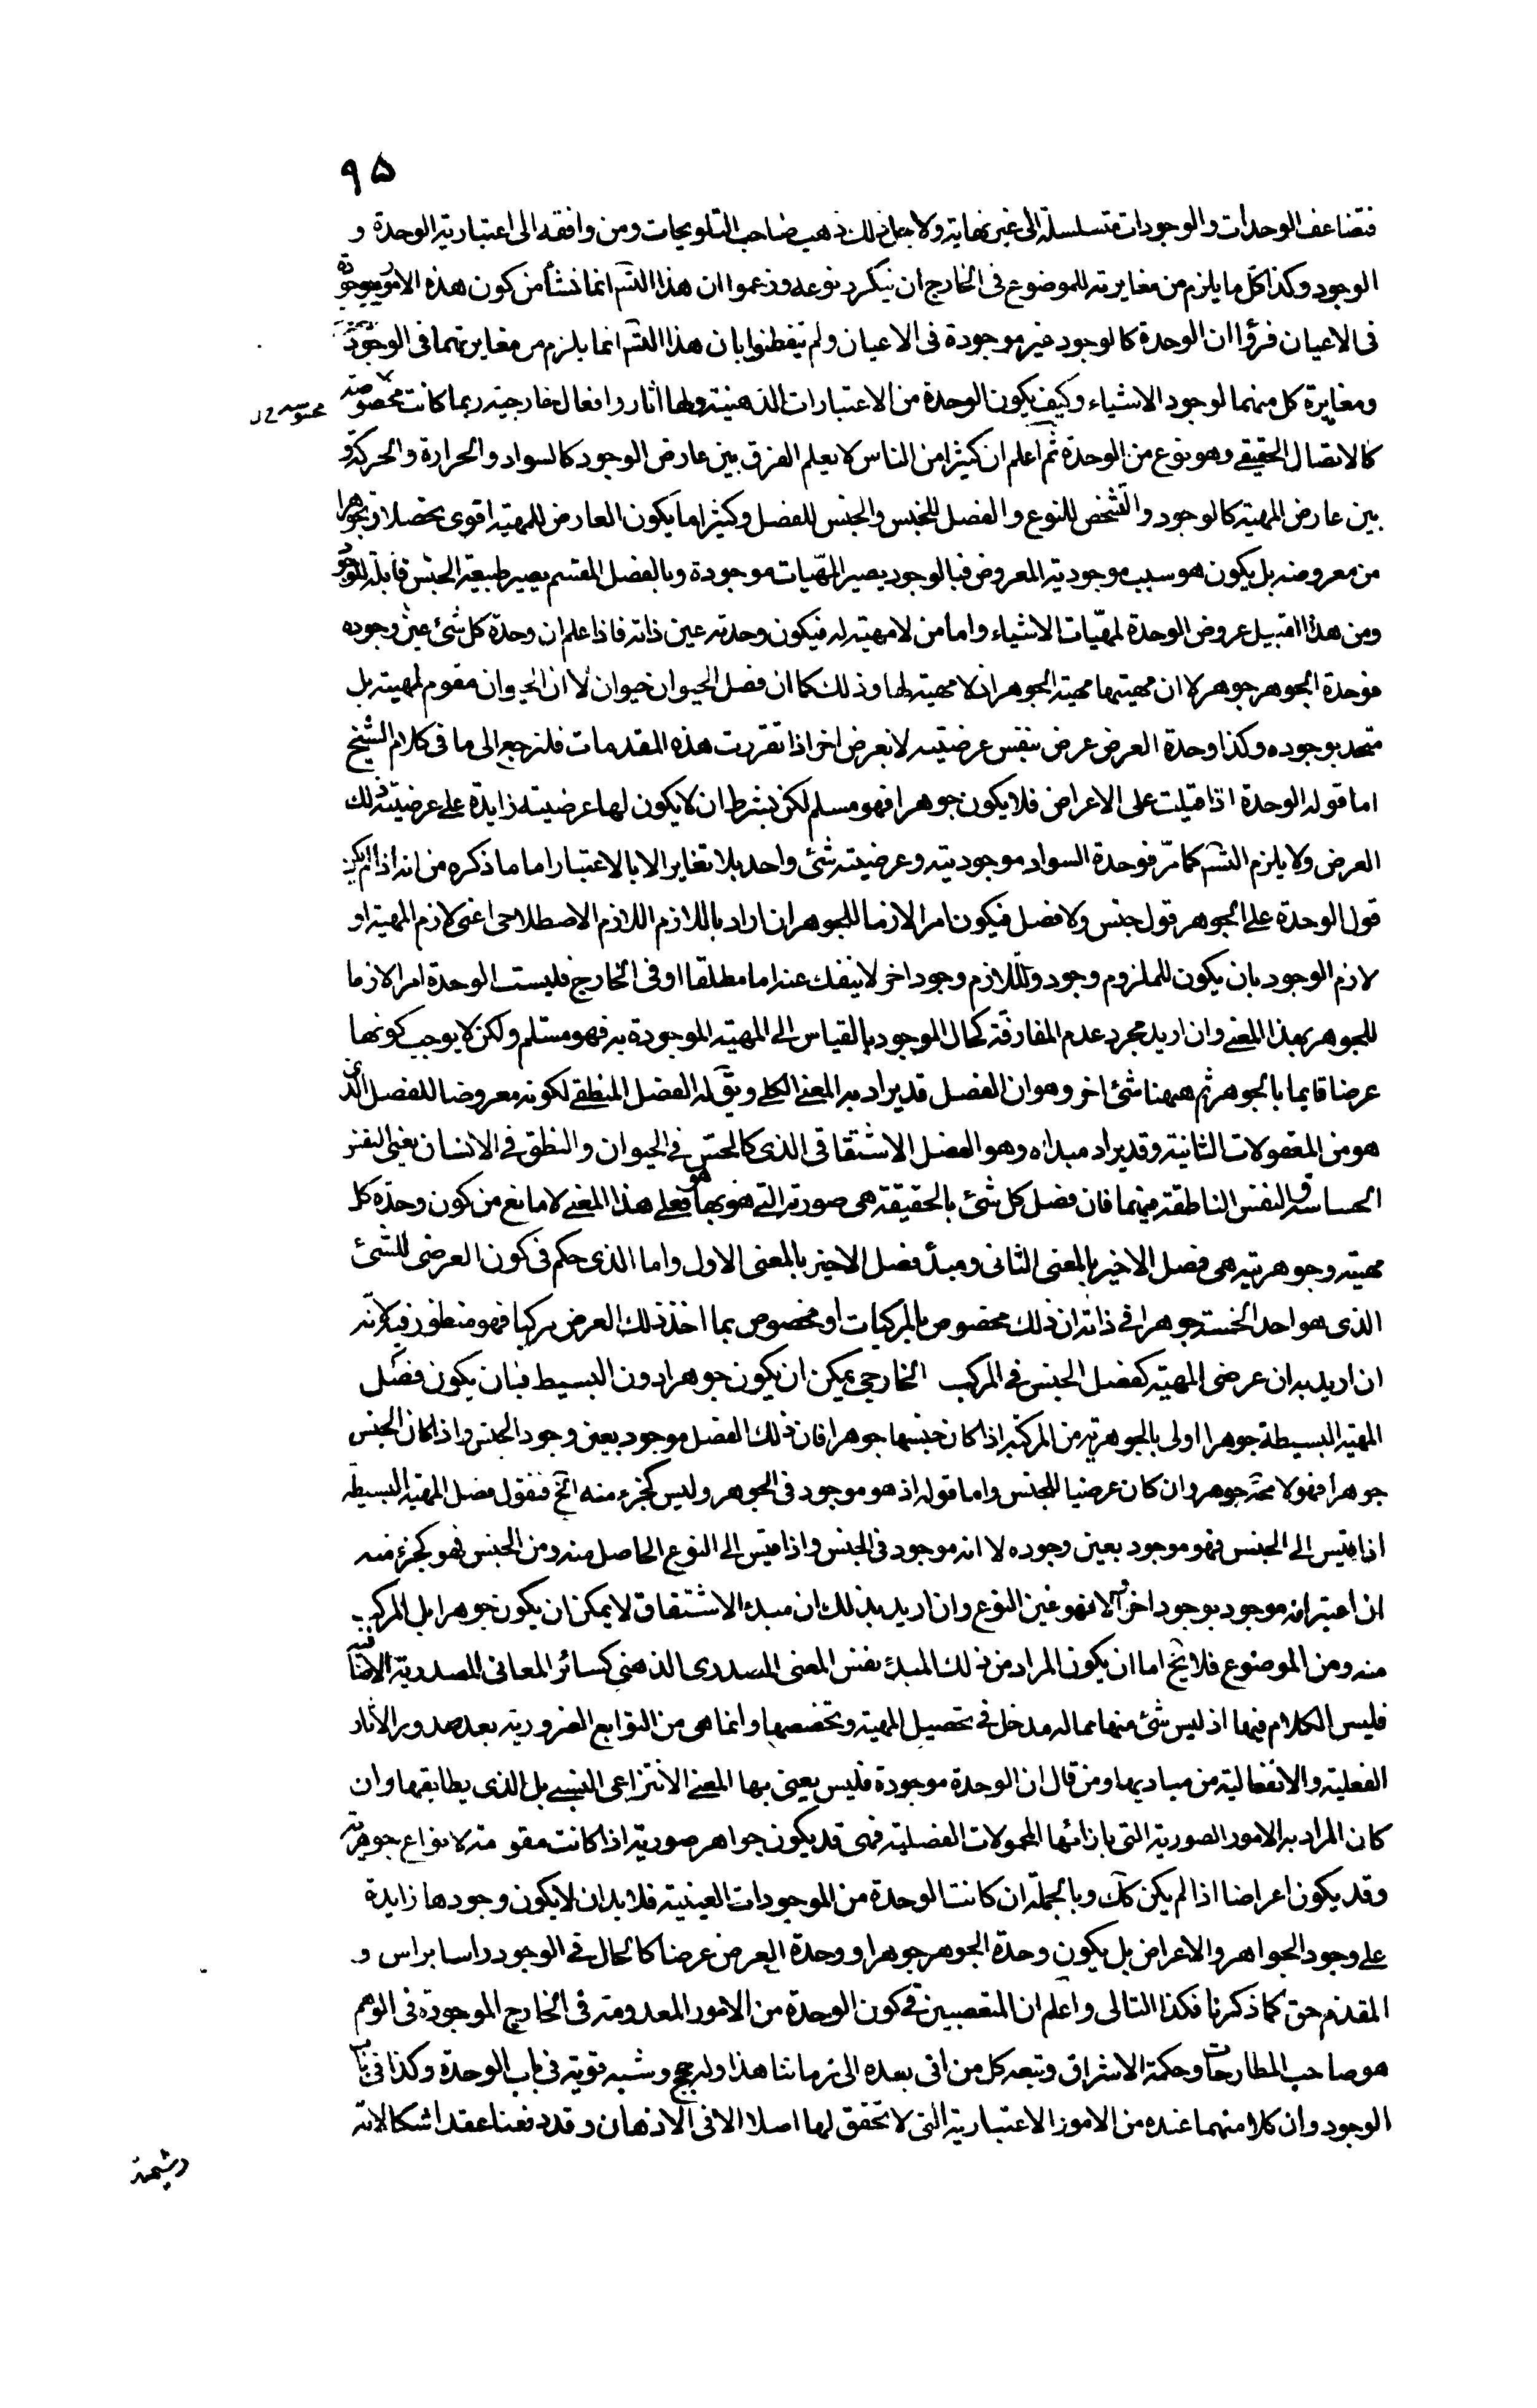 ٩٥
فتضاعف الوحدات والوجودات متسلسلة الى غير نهاية ولاجل ذلك ذهب صاحب التلويحات ومن وافقه الى اعتبارية الوحدة و
الوجود وكذا كل ما يلزم من مغايرته للموضوع فى الخارج ان يتكرر نوعه وزعموا ان هذا التسم انما نشأ من كون هذه الامور موجودة
فى الاعيان فرأوا ان الوحدة كالوجود غير موجودة فى الاعيان ولم يتفطنوا بان هذا التسم انما يلزم من مغايرتهما فى الوجود
ومغايرة كل منهما لوجود الاشياء وكيف يكون الوحدة من الاعتبارات الذهنية ولها اثار وافعال خارجية ربما كانت مخصوصة
محسوسة خ ل
كالاتصال الحقيقى وهو نوع من الوحدة ثم اعلم ان كثيرا من الناس لا يعلم الفرق بين عارض الوجود كالسواد والحرارة والحركة و
بين عارض المهية كالوجود والتشخص للنوع والفصل للجنس والجنس للفصل وكثيرا ما يكون العارض للمهية اقوى تحصلا وتجوهرا
من معروضه بل يكون هو سبب موجودية المعروض فبالوجود يصير المهيات موجودة وبالفصل المقسم يصير طبيعة الجنس قابلة للوجود
ومن هذا القبيل عروض الوحدة لمهيات الاشياء واما من لا مهية له فيكون وحدته عين ذاته فاذا علم ان وحدة كل شئ عين وجوده
فوحدة الجوهر جوهر لا ان مهيتها مهية الجوهر اذ لا مهية لها وذلك كما ان فصل الحيوان حيوان لا ان الحيوان مقوم لمهيته بل
متحد بوجوده وكذا وحدة العرض عرض بنفس عرضيته لا بعرض اخر اذا تقررت هذه المقدمات فلنرجع الى ما فى كلام الشيخ
اما قوله الوحدة اذا قيلت على الاعراض فلا يكون جوهرا فهو مسلم لكن بشرط ان لا يكون لها عرضية زايدة على عرضية ذلك
العرض ولا يلزم التسم كما مر فوحدة السواد موجوديته وعرضيته شئ واحد بلا تغاير الا بالاعتبار اما ما ذكره من انه اذا لم يكن
قول الوحدة على الجوهر قول جنس ولا فصل فيكون امرا لازما للجوهر ان اراد باللازم اللازم الاصطلاحى اعنى لازم المهية او
لازم الوجود بان يكون للملزوم وجود وللازم وجود اخر لا ينفك عنه اما مطلقا او فى الخارج فليست الوحدة امرا لازما
للجوهر بهذا المعنى وان اريد مجرد عدم المفارقة كحال الموجود بالقياس الى المهية الموجودة به فهو مسلم ولكن لا يوجب كونها
عرضا قايما بالجوهر ثم ههنا شئ اخر وهو ان الفصل قد يراد به المعنى الكلى ويق له الفصل المنطقى لكونه معروضا للفصل الذى
هو من المعقولات الثانية وقد يراد مبدأه وهو الفصل الاشتقاقى الذى كالحس فى الحيوان والنطق فى الانسان يعنى النفس
الحساسة والنفس الناطقة فيهما فان فصل كل شئ بالحقيقة هى صورته التى هو بها هو فعلى هذا المعنى لا مانع من كون وحدة كل
مهية وجوهرية هى فصل الاخير بالمعنى الثانى ومبدأ فصل الاخير بالمعنى الاول واما الذى حكم فى كون العرضى للشئ
الذى هو احد الخمسة جوهرا فى ذاته ان ذلك مخصوص بالمركبات او مخصوص بما اخذ ذلك العرض مركبا فهو منظور فيه لانه
ان اريد به ان عرضى المهية كفصل الجنس فى المركب الخارجى يمكن ان يكون جوهرا دون البسيط فبان يكون فصل
المهية البسيطة جوهرا اولى بالجوهرية من المركبة اذا كان جنسها جوهرا فان ذلك الفصل موجود بعين وجود الجنس واذا كان الجنس
جوهرا فهو لا محة جوهر وان كان عرضيا للجنس واما قوله اذ هو موجود فى الجوهر وليس كجزء منه الخ فنقول فصل المهية البسيطة
اذا قيس الى الجنس فهو موجود بعين وجوده لا انه موجود فى الجنس واذا قيس الى النوع الحاصل منه ومن الجنس فهو كجزء منه
ان اعتبر انه موجود بوجود اخر والا فهو عين النوع وان اريد بذلك ان مبدء الاشتقاق لا يمكن ان يكون جوهرا بل المركب
منه ومن الموضوع فلا يخ اما ان يكون المراد من ذلك المبدء نفس المعنى المصدرى الذهنى كسائر المعانى المصدرية الاضافية
فليس الكلام فيها اذ ليس شئ منها مما له مدخل فى تحصيل المهية وتخصصها وانما هى من التوابع الضرورية بعد صدور الاثار
الفعلية والانفعالية من مباديها ومن قال ان الوحدة موجودة فليس يعنى بها المعنى الانتزاعى النسبى بل الذى يطابقها وان
كان المراد به الامور الصورية التى بازائها المحمولات الفصلية فهى قد يكون جواهر صورية اذا كانت مقومة لانواع جوهرية
وقد يكون اعراضا اذا لم يكن كك وبالجملة ان كانت الوحدة من الموجودات العينية فلا بد ان لا يكون وجودها زايدة
على وجود الجواهر والاعراض بل يكون وحدة الجوهر جوهرا ووحدة العرض عرضا كالحال فى الوجود راسا براس و
المقدم حق كما ذكرنا فكذا التالى واعلم ان المتعصبين فى كون الوحدة من الامور المعدومة فى الخارج الموجودة فى الوهم
هو صاحب المطارحات وحكمة الاشراق وتبعه كل من اتى بعده الى زماننا هذا وله حجج وشبه قوية فى باب الوحدة وكذا فى باب
الوجود وان كلا منهما عنده من الامور الاعتبارية التى لا تحقق لها اصلا الا فى الاذهان وقد دفعنا عقد اشكالاته
وشبهة